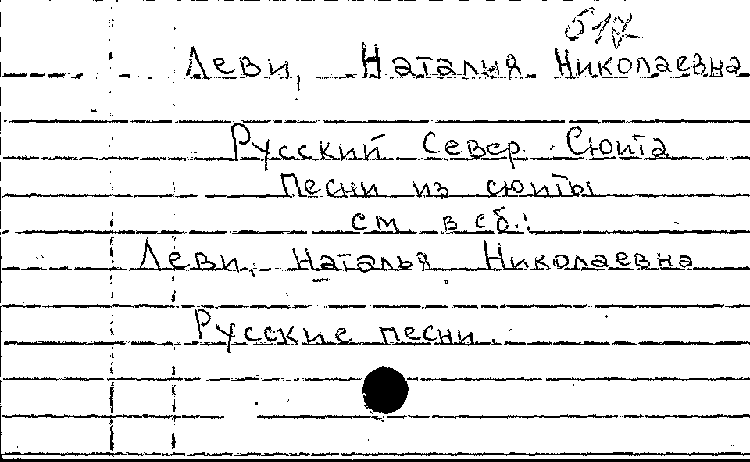 517
Леви, Наталия Николаевна
Русский Север. Сюита
Песни из сюиты
см. в сб.:
Леви, Наталья Николаевна
Русские песни.